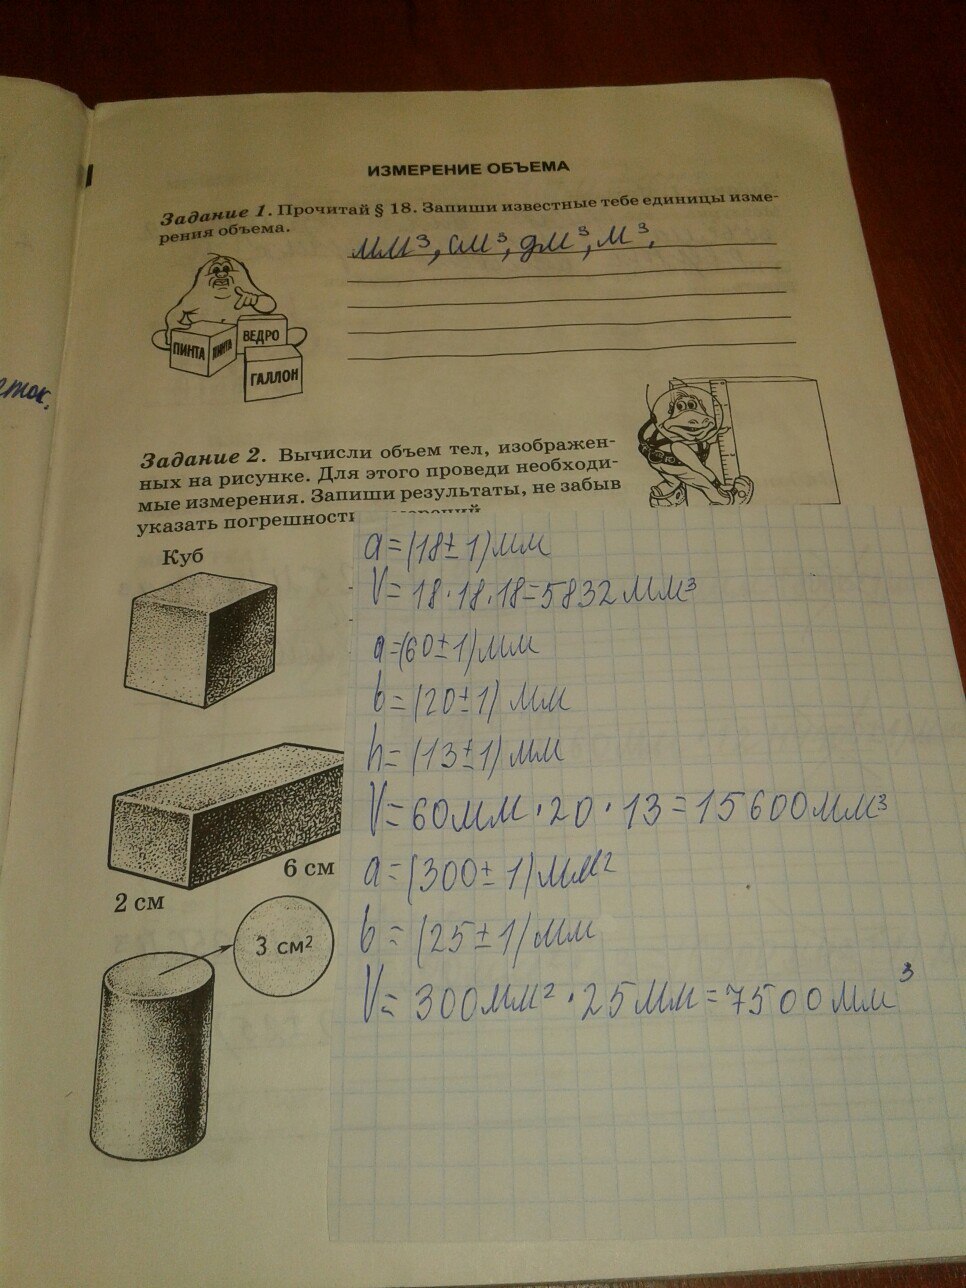 ИЗМЕРЕНИЕ ОБЪЕМА
Задание 1. Прочитай § 18. Запиши известные тебе единицы изме-
рения объема.
мм³, см³, дм³, м³.
ПИНТА ПИНТА
ВЕДРО
ГАЛЛОН
Задание 2. Вычисли объем тел, изображен-
ных на рисунке. Для этого проведи необходи-
мые измерения. Запиши результаты, не забыв
указать погрешности
Куб
a=(18±1)мм
V=18·18·18=5832мм³
a=(60±1)мм
b=(20±1)мм
h=(13±1)мм
V=60мм·20·13=15600мм³
6 см
2 см
a=(300±1)мм²
b=(25±1)мм
3 см²
V=300мм²·25мм=7500мм³